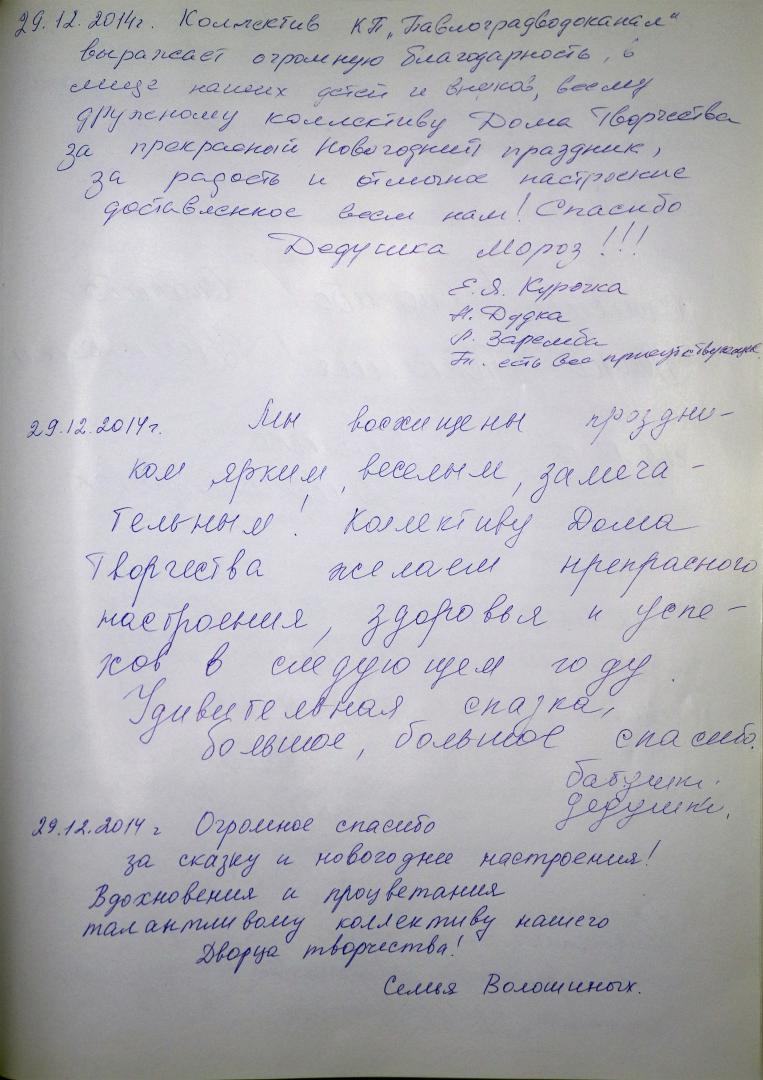 29.12.2014г. Коллектив КП „Павлоградводоканал"
выражает огромную благодарность, в
лице наших детей и внуков, всему
дружному коллективу Дома Творчества
за прекрасный Новогодний праздник,
за радость и отличное настроение
доставленное всем нам! Спасибо
Дедушка Мороз!!!
Е.Я. Курочка
Н. Дудка
Л. Заремба
есть все присутствующие
29.12.2014г. Мы восхищены праздни-
ком ярким, веселым, замеча-
тельным! Коллективу Дома
Творчества желаем прекрасного
настроения, здоровья и успе-
хов в следующем году.
Удивительная сказка,
большое, большое спасибо.
бабушки.
дедушки.
29.12.2014г Огромное спасибо
за сказку и новогоднее настроения!
Вдохновения и процветания
талантливому коллективу нашего
Дворца творчества!
Семья Волошиных.